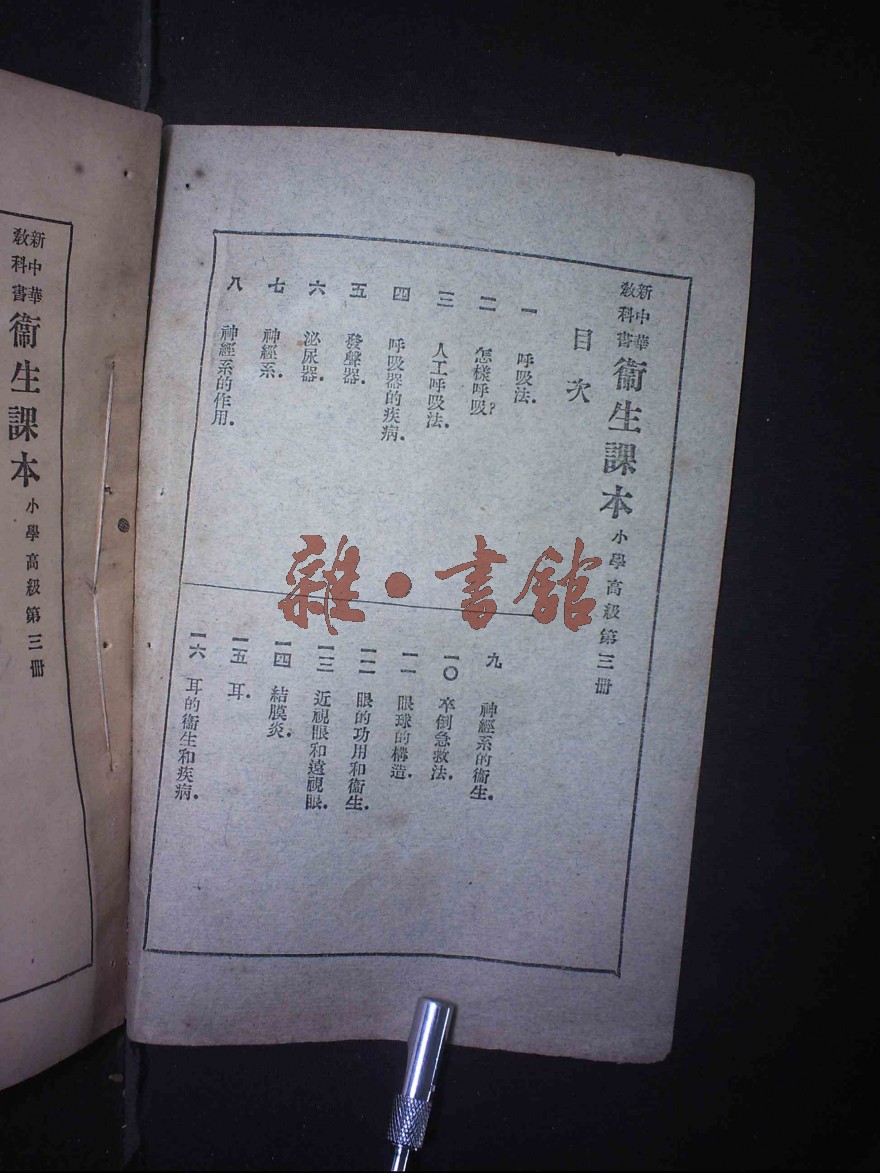 新中華
教科書
衞生課本 小學高級第三冊
目次
一 呼吸法.
二 怎樣呼吸?
三 人工呼吸法.
四 呼吸器的疾病.
五 發聲器.
六 泌尿器.
七 神經系.
八 神經系的作用.
九 神經系的衞生.
一〇 卒倒急救法.
一一 眼球的構造.
一二 眼的功用和衞生.
一三 近視眼和遠視眼.
一四 結膜炎.
一五 耳.
一六 耳的衞生和疾病.
雜·書館
新中華
教科書
衞生課本 小學高級第三冊